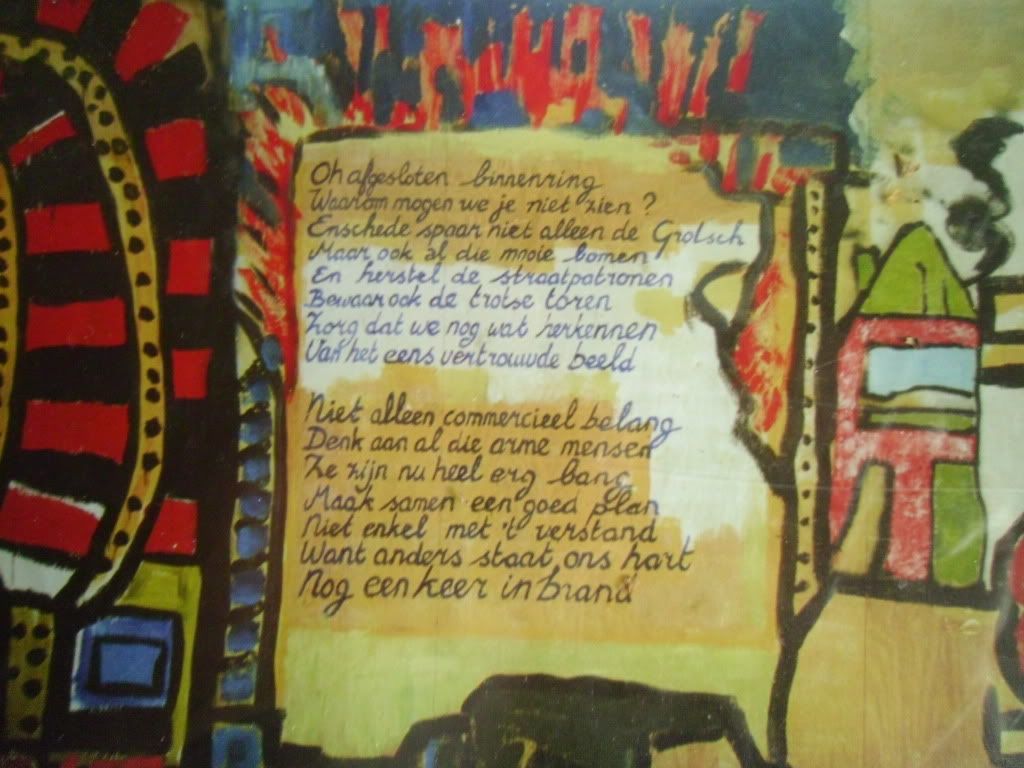 Oh afgesloten binnenring
Waarom mogen we je niet zien?
Enschede spaar niet alleen de Grolsch
Maar ook al die mooie bomen
En herstel de straatpatronen
Bewaar ook de trotse toren
Zorg dat we nog wat herkennen
Van het eens vertrouwde beeld
Niet alleen commercieel belang
Denk aan al die arme mensen
Ze zijn nu heel erg bang
Maak samen een goed plan
Niet enkel met 't verstand
Want anders staat ons hart
Nog een keer in brand